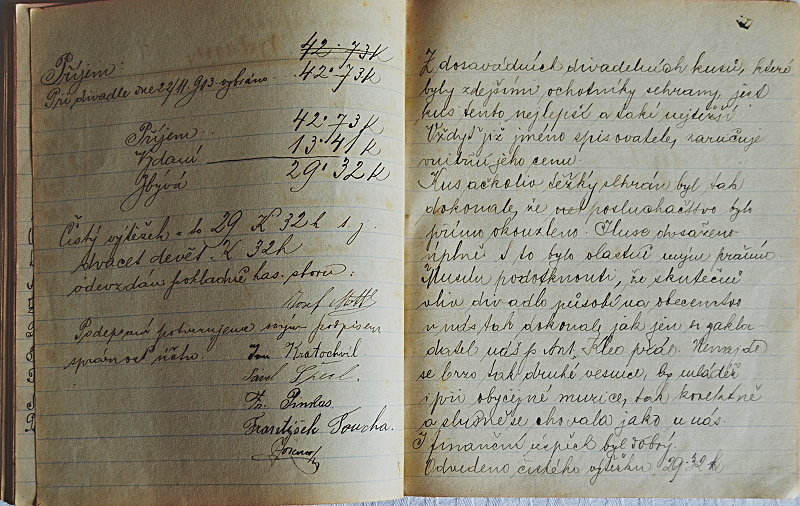 42·73K
Příjem:
Při divadle dne 22/11. 903 vybráno .. 42·73K
Příjem .. 42·73K
Vydaní 13·41K
Zbývá 29·32K
Čistý výtěžek a to 29 K 32 h t. j.
dvacet devět K 32h
odevzdán pokladně has. sboru:
Josef
Podepsaní potvrzujeme svým podpisem
správnost účtu. Jan Kratochvil
Karel
Fr.
František Toucha.
Z dosavádních divadelních kusů, které
byly zdejšími ochotníky sehrany, jest
kus tento nejlepší a také nejtěžší
Vždyť již jméno spisovatele zaručuje
vnitřní jeho cenu.
Kus ačkoliv těžký sehrán byl tak
dokonale, že posluchačstvo bylo
přímo okouzleno. Iluse dosaženo
úplně a to bylo vlastně mým přáním
Musím podotknouti, že skutečně
vliv divadlo působí na obecenstvo
u nás tak dokonale, jak jen si zakla-
datel náš p. Ant. Kleo přál. Nenajde
se brzo tak druhé vesnice, by mládež
i při obyčejné muzice, tak korektně
a slušně se chovala jako u nás.
I finanční úspěch byl dobrý.
Odvedeno čistého výtěžku 29·32 k